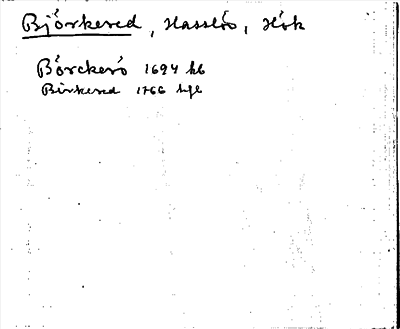 Björkered, Hasslöv, Hök
Börckerö 1694 kb
Birkered 1766 hfl